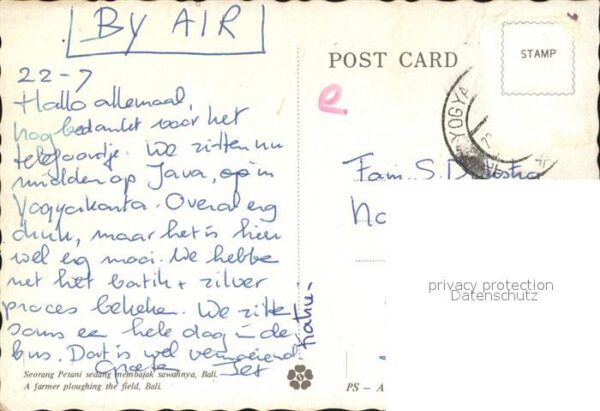 BY AIR
POST CARD
STAMP
22-7
Hallo allemaal,
nog bedankt voor het
telefoontje. We zitten nu
midden op Java, op in
Yogyakarta. Overal erg
druk, maar het is hier
wel erg mooi. We hebbe
net het batik + zilver
proces bekeken. We zitte
soms een hele dag in de
bus. Dat is wel vermoeiend.
Groeten Jet
YOGYA
Fam. S.
privacy protection
Datenschutz
Seorang Petani sedang membajak sawahnya, Bali.
A farmer ploughing the field, Bali.
PS - A